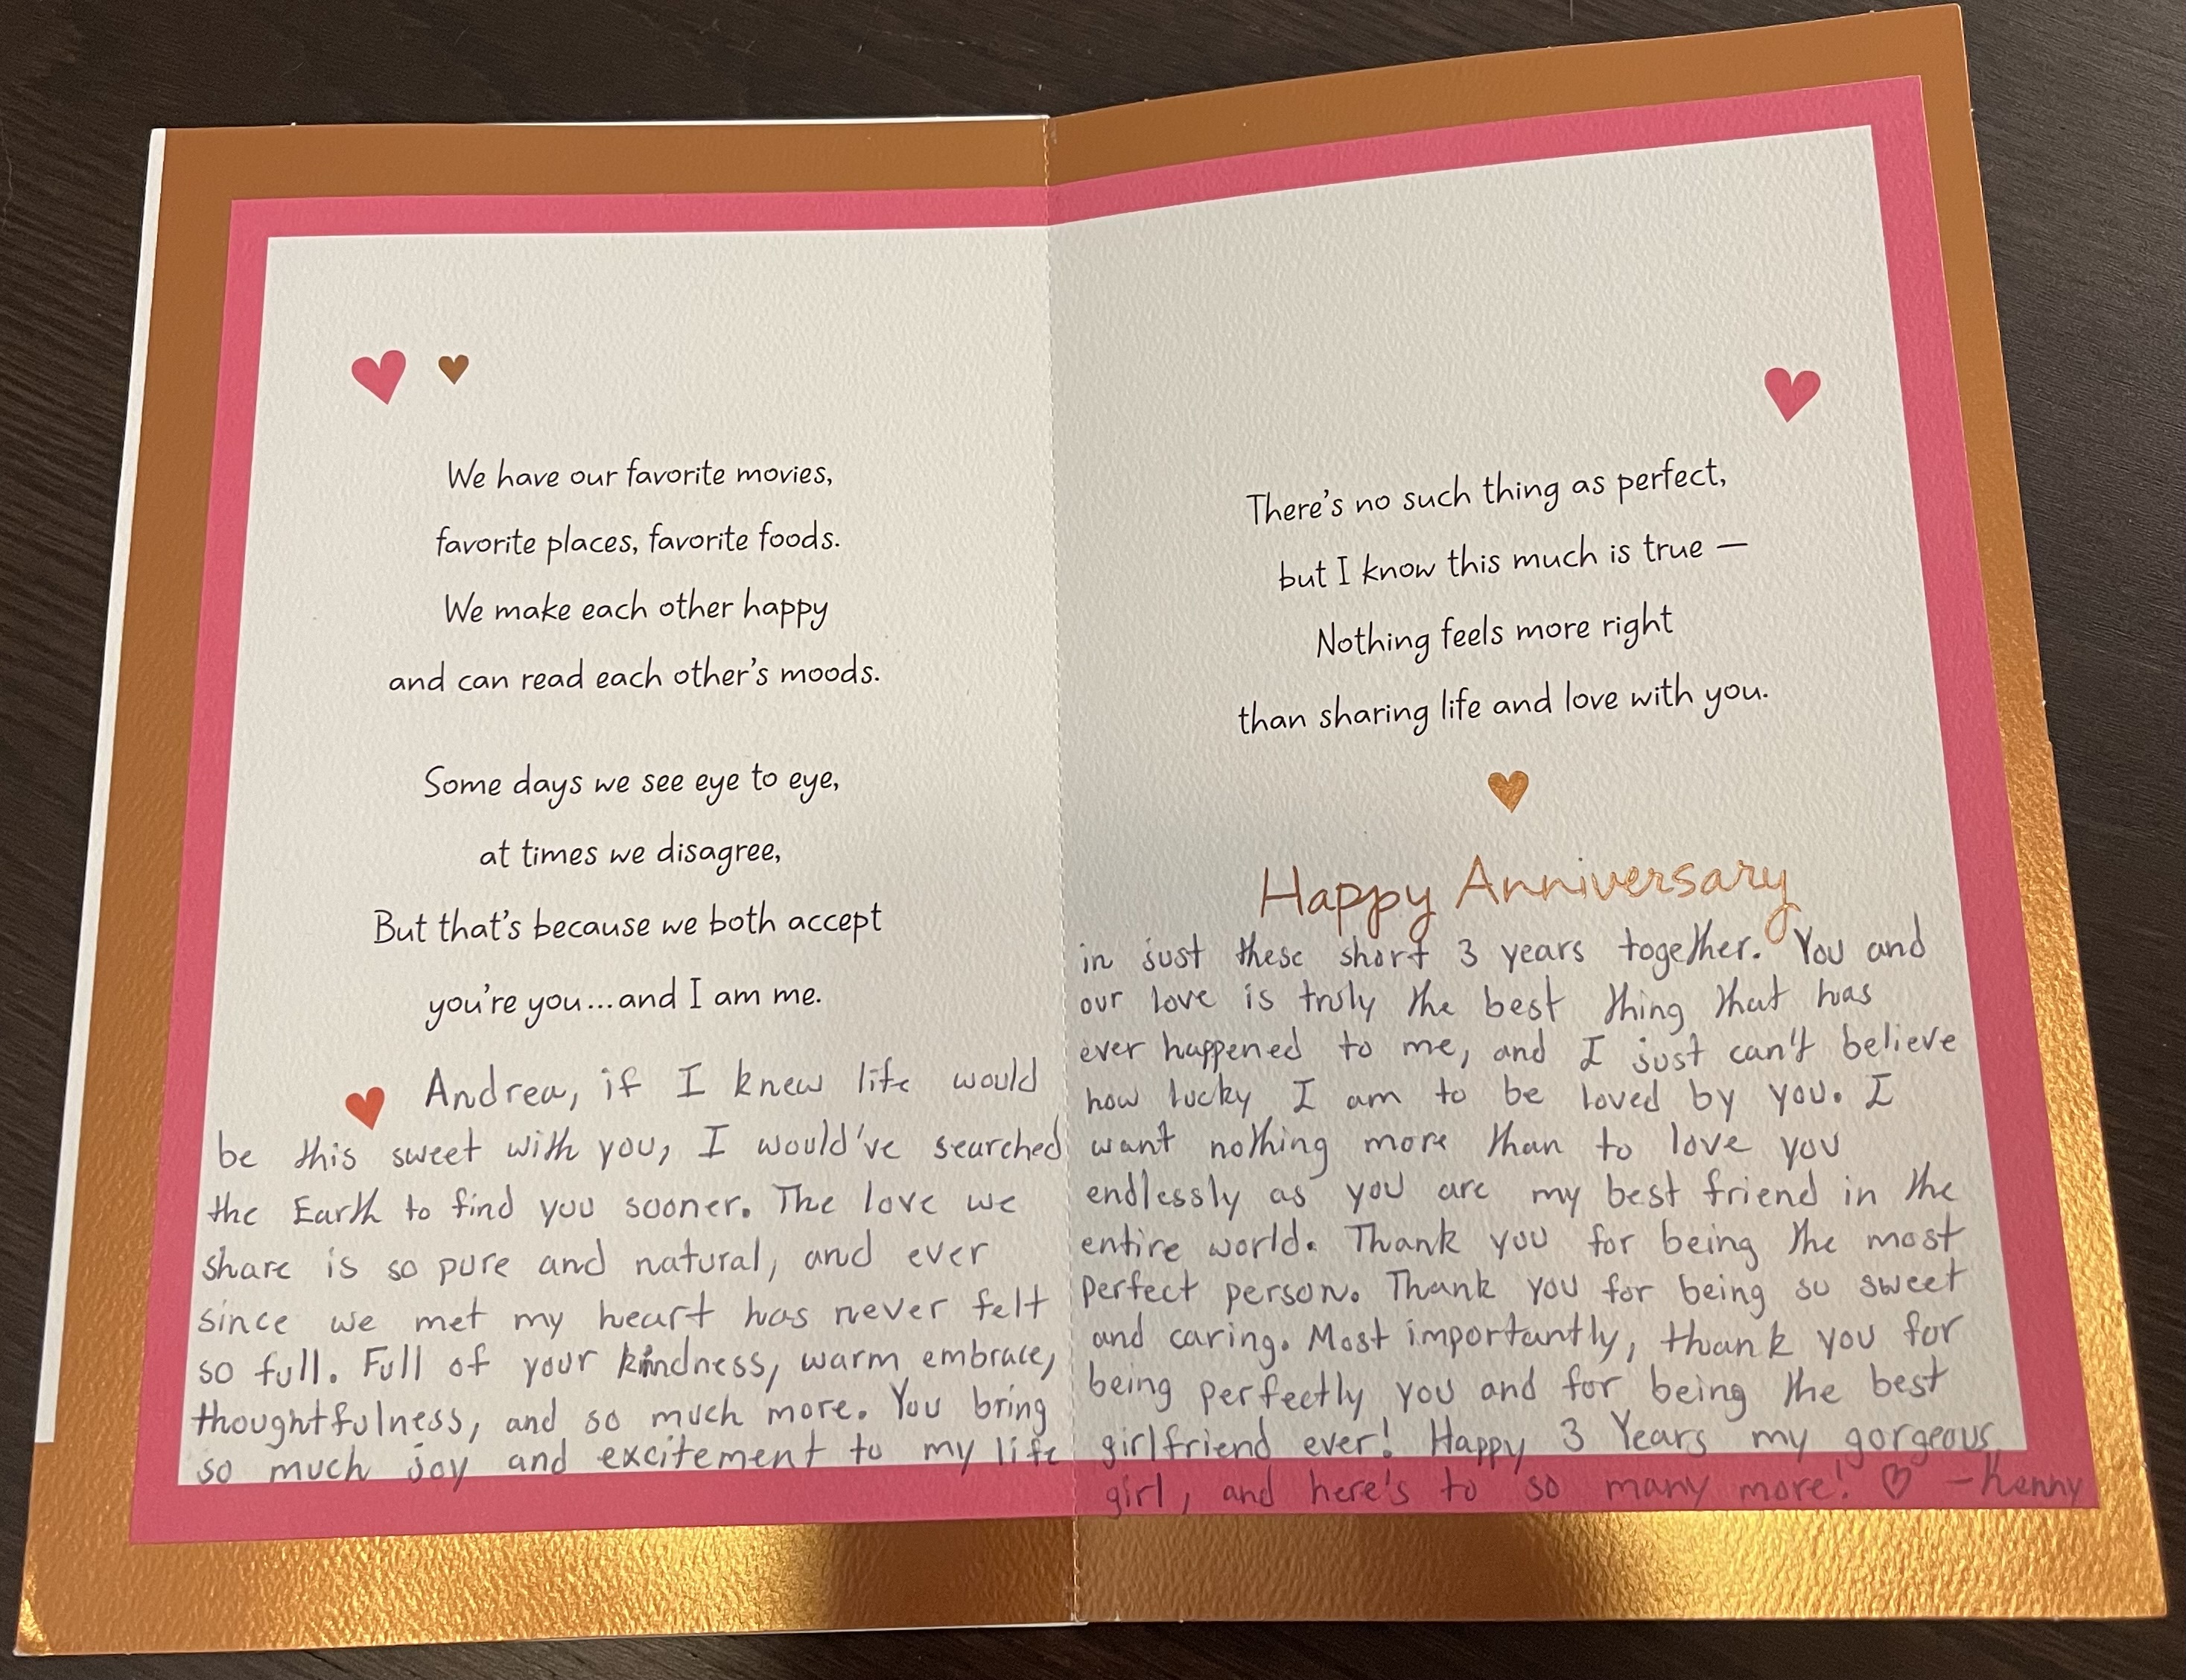 We have our favorite movies,
favorite places, favorite foods.
We make each other happy
and can read each other's moods.
Some days we see eye to eye,
at times we disagree,
But that's because we both accept
you're you...and I am me.
Andrea, if I knew life would
be this sweet with you, I would've searched
the Earth to find you sooner. The love we
share is so pure and natural, and ever
since we met my heart has never felt
so full. Full of your kindness, warm embrace,
thoughtfulness, and so much more. You bring
so much joy and excitement to my life
There's no such thing as perfect,
but I know this much is true —
Nothing feels more right
than sharing life and love with you.
Happy Anniversary
in just these short 3 years together. You and
our love is truly the best thing that has
ever happened to me, and I just can't believe
how lucky I am to be loved by you. I
want nothing more than to love you
endlessly as you are my best friend in the
entire world. Thank you for being the most
perfect person. Thank you for being so sweet
and caring. Most importantly, thank you for
being perfectly you and for being the best
girlfriend ever! Happy 3 Years my gorgeous
girl, and here's to so many more! ♡ -Kenny